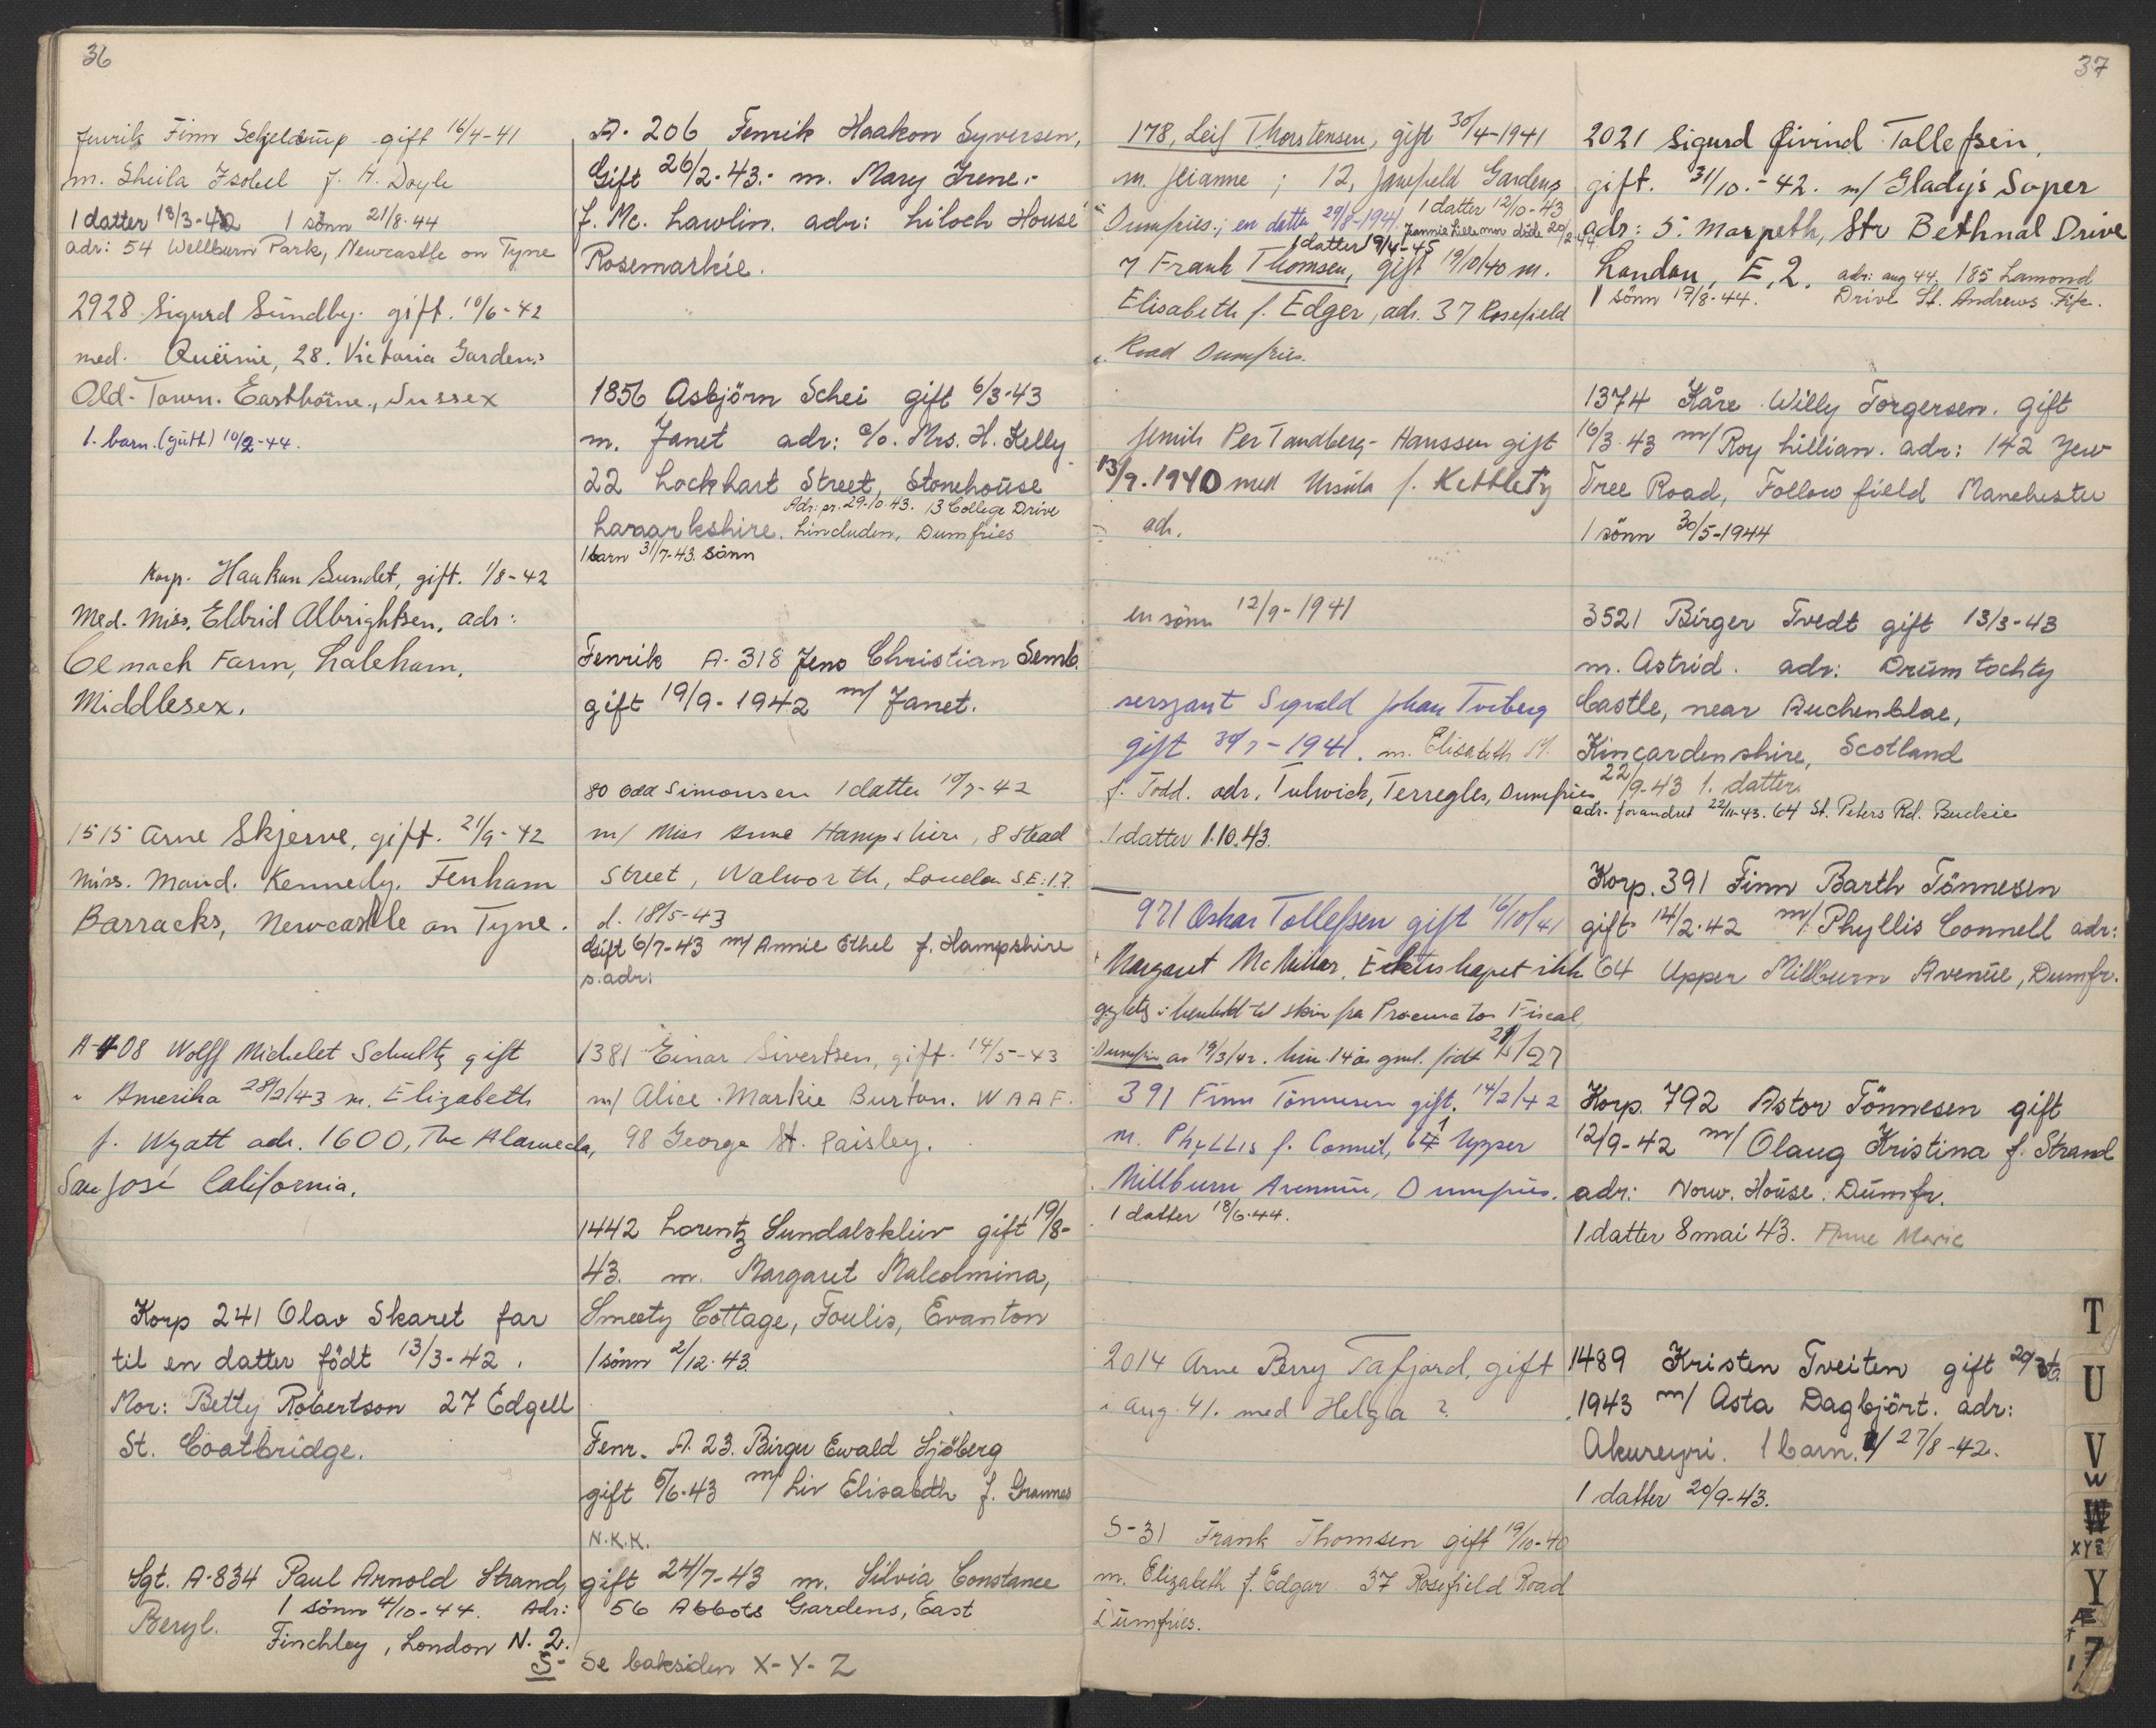 36
Fenrik Finn Schjelderup gift 16/4-41
m. Sheila Isobel f. H. Doyle
1 datter 13/3-42 1 sönn 21/8-44
adr: 54 Wellburn Park, Newcastle on Tyne
2928 Sigurd Sundby. gift. 10/6-42
med. Queenie, 28. Victoria Gardens
Old-Town. Eastborne, Sussex
1. barn. (gutt) 10/2-44.
Korp. Haakon Sundet, gift. 1/8-42
Med. Miss. Eldrid Albrightsen. adr:
Farm, Laleham.
Middlesex.
1515 Arne Skjerve, gift. 21/9-42
miss. Maud. Kennedy. Fenham
Barracks, Newcastle on Tyne.
A-408 Wolff Michelet Schultz gift
i Amerika 28/2/43 m. Elizabeth
f. Wyatt adr. 1600, The Alameda,
San José California.
Korp 241 Olav Skaret far
til en datter födt 13/3-42.
Mor: Betty Robertson 27 Edgell
St. Coatbridge.
Sgt. A-834 Paul Arnold Strand, gift 24/7-43 m. Silvia Constance
Beryl. 1 sönn 4/10-44. Adr: 56 Abbots Gardens, East
Finchley, London N. 2.
S- Se baksiden X-Y-Z
A. 206 Fenrik Haakon Syversen,
Gift 26/2-43.- m. Mary Irene.-
f. Mc. Lawlin. adr: Liloch House
Rosemarkie.
1856 Asbjörn Schei gift 6/3-43
m. Janet adr: c/o. Mrs. H. Kelly
22 Lockhart Street, Stonehouse
Adr: pr. 29-10-43. 13 College Drive
Lanarkshire. Lincluden, Dumfries
1 barn 31/7-43. sönn
Fenrik A-318 Jens Christian Semb.
gift 19/9-1942 m/ Janet.
80 Odd Simonsen 1 datter 10/7-42
m/ Miss Anne Hampshire, 8 Stead
Street, Walworth, London S.E.17.
d. 18/5-43
Gift 6/7-43 m/ Annie Ethel f. Hampshire
s.adr:
1381 Einar Sivertsen, gift. 14/5-43
m/ Alice Markie Burton. WAAF.
98 George St. Paisley.
1442 Lorentz Sundalskleiv gift 19/8-
43. m. Margaret Malcolmina,
Smeety Cottage, Foulis, Evanton
1 sönn 2/12-43.
Fenr. A. 23. Birger Ewald Sjöberg
gift 5/6-43 m/ Liv Elisabeth f. Grannes
N.K.K.
37
178, Leif Thorstensen, gift 30/4-1941
m. Jeianne; 12, Janefield Gardens
1 datter 12/10-43
Dumfries.; en datter 29/8-1941. Jannie Lillemor döde 20/2-44.
1 datter 19/4-45
Frank Thomsen, gift 19/10/40 m.
Elisabeth f. Edger, adr. 37 Rosefield
Road Dumfries.
Fenrik Per Tandberg-Hanssen gift
13/9.1940 med Ursula f. Kettlety
adr.
en sönn 12/9-1941
sersjant Sigvald Johan Tviberg
gift 30/7-1941. m. Elisabeth M.
f. Todd. adr. Tulwick, Terregles, Dumfries
1 datter 1.10.43.
971 Oskar Tollefsen gift 16/10/41
Margaret McMillar. Ekteskapet ikke
gyldig i henhold til skriv fra Procurator Fiscal,
Dumfries av 19/3/42. hun 14 år gml. födt 21/5/27
391 Finn Tönnesen gift. 14/2/42
m. Phyllis f. Connel, 64 Upper
Millburn Avennue, Dumfries.
1 datter 18/6-44.
2014 Arne Perry Tafjord, gift
i aug. 41. med Helga ?
S-31 Frank Thomsen gift 19/10-40
m. Elizabeth f. Edgar. 37 Rosefield Road
Dumfries.
2021 Sigurd Öivind Tollefsen,
gift. 31/10.-42. m/ Gladys Soper
adr: 5. Morpeth, Str Bethnal Drive
London, E,2. adr: aug 44, 185 Lamond
1 sönn 17/8-44. Drive St. Andrews Fife.
1374 Kåre Willy Torgersen. gift
16/3-43 m/ Roy Lillian. adr: 142 Yew
Tree Road, Followfield Manchester
1 sönn 30/5-1944
3521 Birger Tvedt gift 13/3-43
m. Astrid. adr: Drumtochty
Castle, near Auchenblae,
Kincardenshire, Scotland
22/9-43 1. datter.
adr. forandret 22/11-43. 64 St. Peters Rd. Buckie
Korp. 391 Finn Barth Tönnesen
gift 14/2-42 m/ Phyllis Connell adr:
64 Upper Millburn Avenue, Dumfr.
Korp. 792 Astor Tönnesen gift
12/9-42 m/ Olaug Kristina f. Strand
adr: Norw. House. Dumfr.
1 datter 8 mai 43. Anne Marie
1489 Kristen Tveiten gift
1943 m/ Asta Dagbjört. adr:
Akureyri. 1 barn. 27/8-42.
1 datter 20/9-43.
T
U
V
W
W
XYZ
Y
Æ